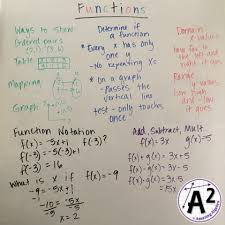 Functions
Ways to show
Ordered pairs
(2,1) (3,6)
Table
Mapping
Graph
Determine if
a function
*Every x has only
one y
-No repeating Xs
*on a graph
-Passes the
vertical line
test - only touches
once
Domain
x-values
how far to the
left and
right it goes
Range
y-values
low high
and low
it goes
Function Notation
f(x) = -5x+1 f(-3)?
f(-3) = -5(-3)+1
f(-3) = 16
What is x if f(x) = -9
-9 = -5x+1
-10 = -5x
-5 -5
x = 2
Add, Subtract, Mult
f(x) = 3x g(x) = 5
f(x)+g(x) = 3x+5
f(x)-g(x) = 3x-5
f(x)·g(x) = 3x·5
= 15x
A2